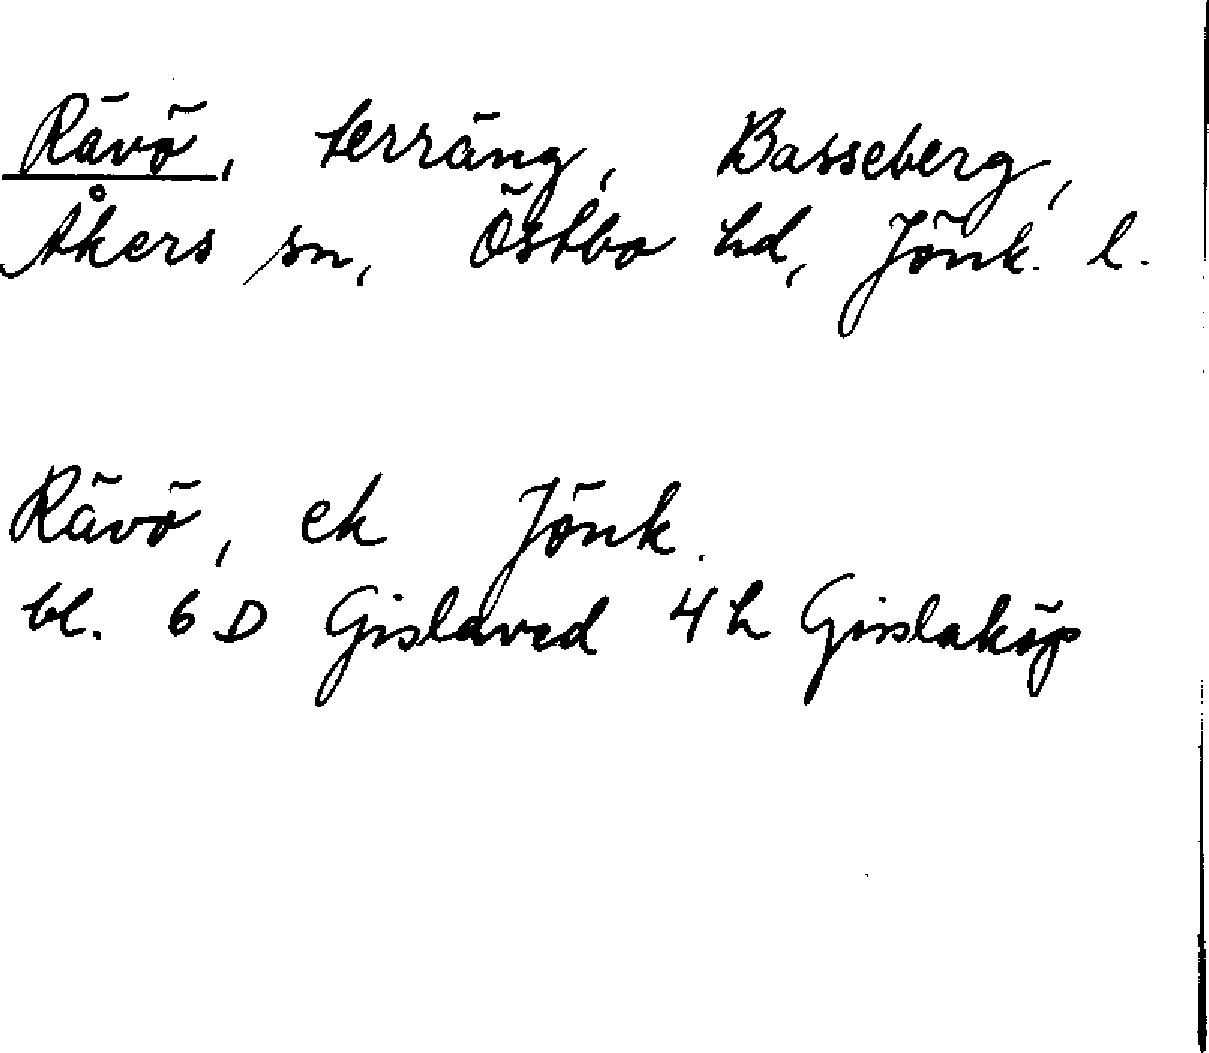 Rävö, terräng, Basseberg,
Åkers sn, Östbo hd, Jönk. l.
Rävö, ek Jönk.
bl. 6 D Gislaved 4 h Gislaköp